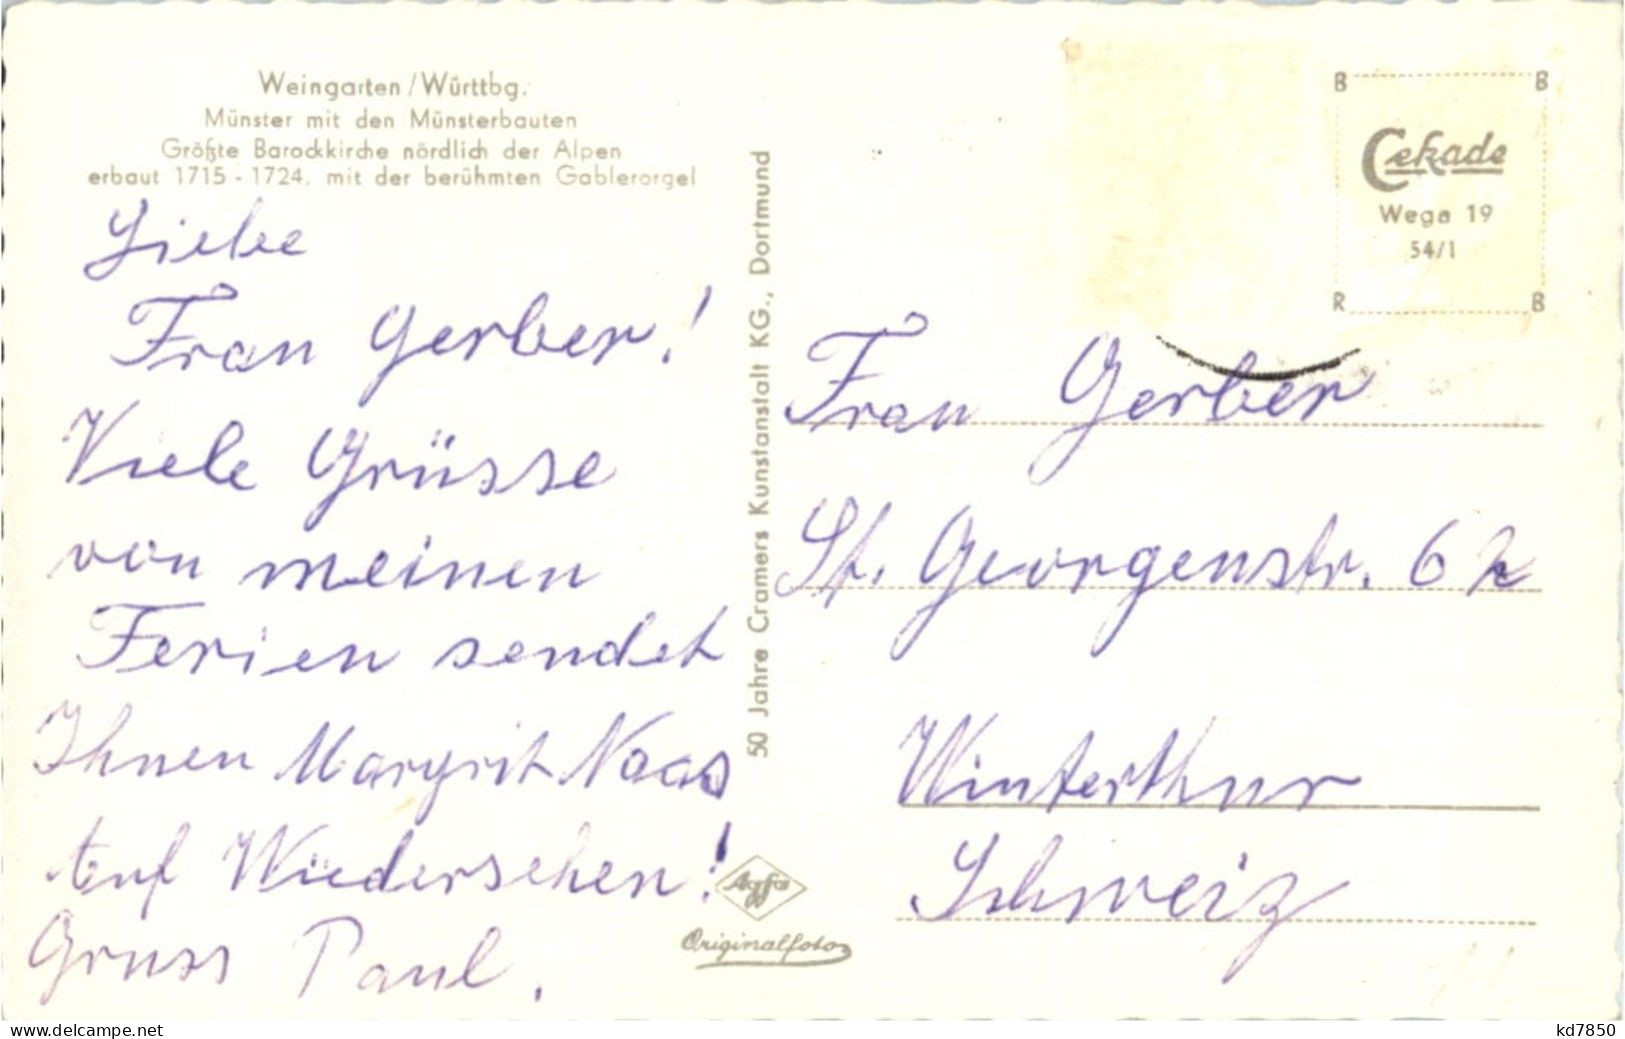 Weingarten / Württbg.
Münster mit den Münsterbauten
Größte Barockkirche nördlich der Alpen
erbaut 1715 - 1724, mit der berühmten Gablerorgel
Liebe
Frau Gerber!
Viele Grüsse
von meinen
Ferien sendet
Ihnen Margrit Naas
Auf Wiedersehen!
Gruss Paul.
50 Jahre Cramers Kunstanstalt KG., Dortmund
Agfa
Originalfoto
B B
Cekade
Wega 19
54/1
R B
Frau Gerber
St. Georgenstr. 6
Winterthur
Schweiz
delcampe.net
kd7850